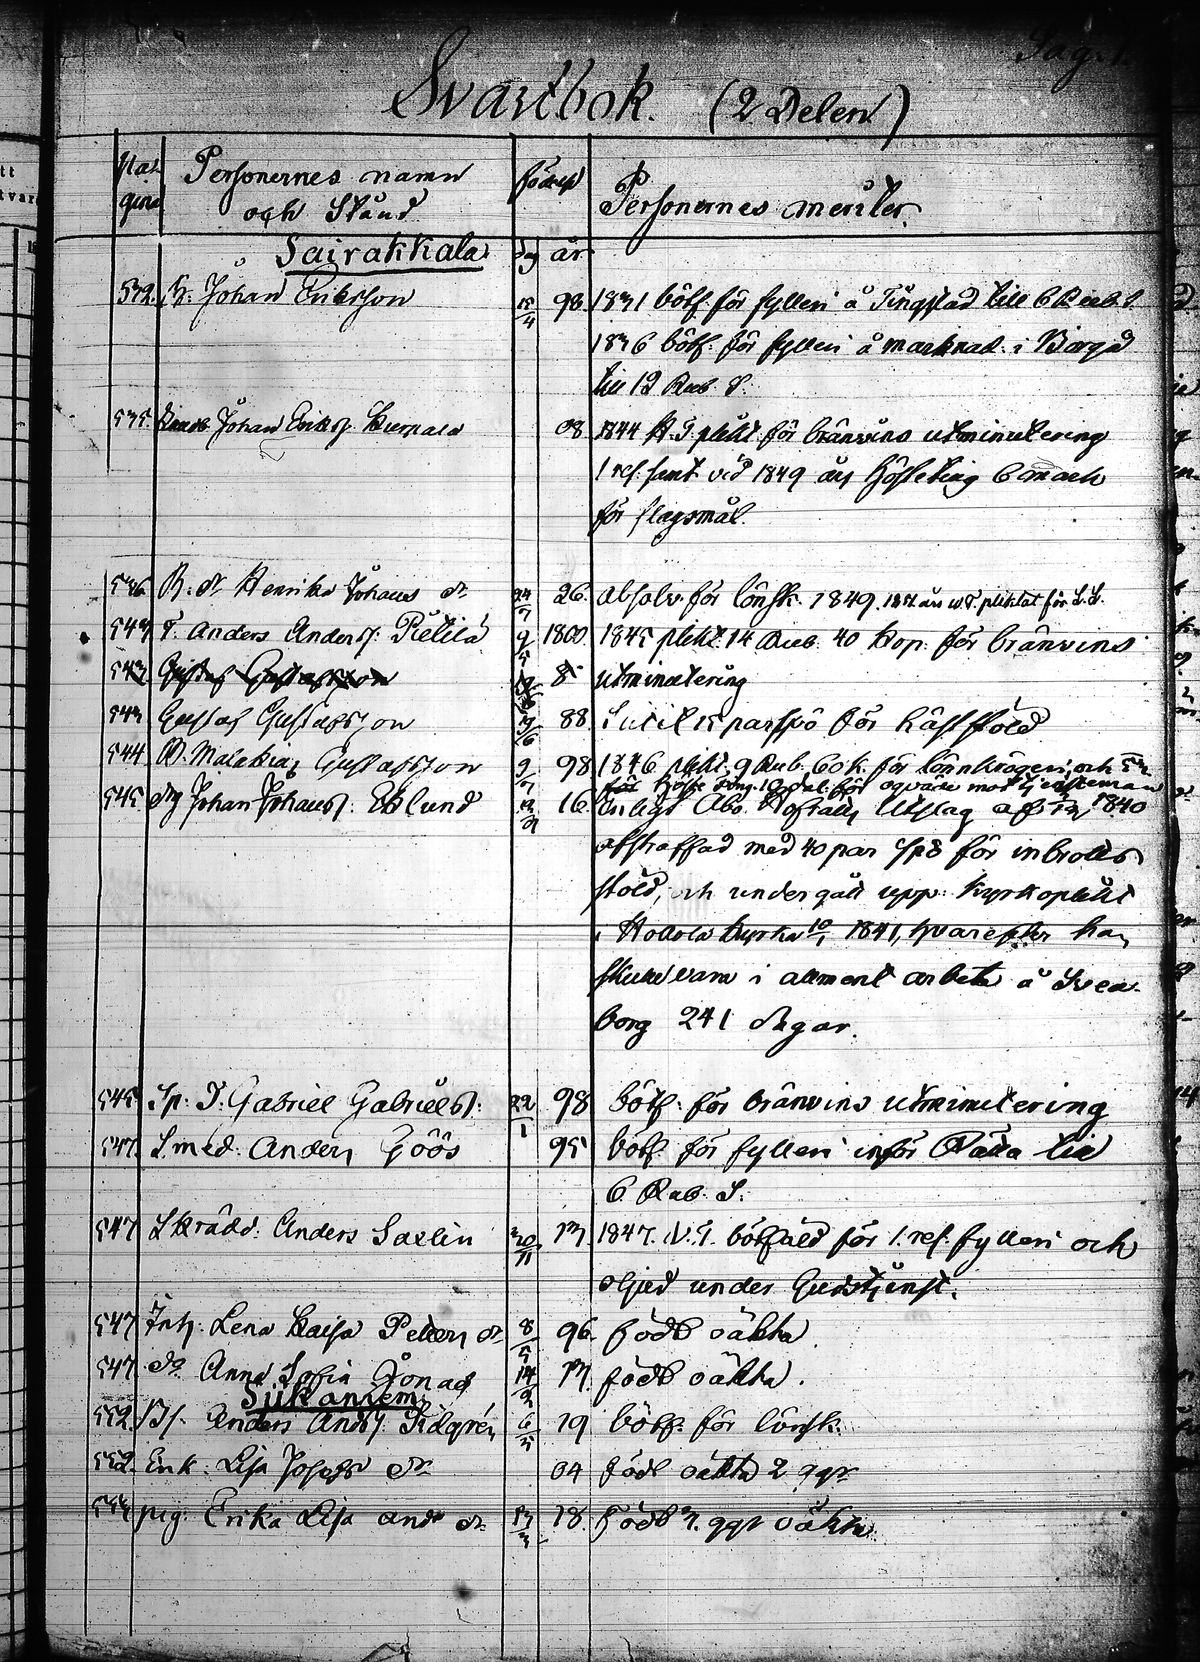 Pag. 1.
Svartbok. (2 Delen)
Pa-
gina
Personernes namn
och Stånd
född
Personernes meriter.
Sairakkala
dag år
532. B. Johan Eriksson 15/4 98. 1831 bötf. för fylleri å Tingstad till 6 Rub. S.
1836 bötf. för fylleri å marknad i Borgå
till 12 Rub. S.
535. Johan Eriksf. 08 1844 H.T. plikt. för bränvins utminutering
1 res. samt vid 1849 års Hösteting 6 mark
för slagsmål.
536. B. dr Henrika Johans dr 24/7 26. absolv. för lönsk. 1849.
543 T. Anders Andersf. Pietilä 9/5 1800. 1845 plikt. 14 Rub. 40 kop. för bränvins
utminutering
543 Gustaf Gustafsson 85
543 Gustaf Gustafsson 29/6 88. 15 par spö för häststöld
544 B. Malakias Gustafsson 9/7 98 1846 plikt. 9 Rub. 60 k. för lönnkrögeri, och
545 dg Johan Johansf. Eklund 16. Enligt Åbo Hofrätts Utslag af 1840
afstraffad med 40 par spö för inbrotts
stöld, och undergått upp. kyrkoplikt
i Hollola kyrka 10/1 1841, hvarefter han
skulle vara i allmänt arbete å Svea-
borg 241 dagar.
545 Sp. T. Gabriel Gabrielsf. 22/1 98 bötf. för bränvins utminutering
547. Smed. Anders Göös 95 bötf. för fylleri inför Rätta till
6 Rub. S.
547 Skrädd. Anders Saxlin 30/11 13 1847. V.T. bötfäld för 1. res. fylleri och
oljud under Gudstjenst.
547 Inh. Lena Kaisa Petters dr 8/5 96. född oäkta.
547. do Anna Sofia Jonas 14/2 17. född oäkta.
Siikaniemi
552. Bs. Anders Andsf. 6/5 19 bötf. för lönsk.
552. Enk. Lisa Josefs dr 04 född oäkta 2 ggr
553 pig. Erika Lisa And. dr 18. född 3. ggr oäkta.